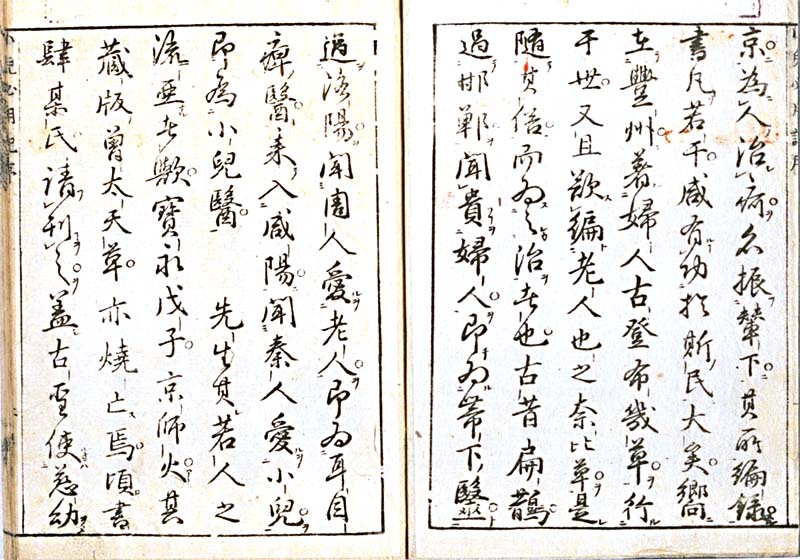 京為人治病名振輦下其所編録
書凡若干咸有功於斯民大矣嚮
在豐州著婦人古登布幾草行
于世又且欲編老人也之奈比草是
隨其俗而為之治者也古昔扁鵲
過邯鄲聞貴婦人即為帶下醫
過洛陽聞周人愛老人即為耳目
痺醫來入咸陽聞秦人愛小兒
即為小兒醫 先生其若人之
流亜者歟寶永戊子京師火其
藏版曽太天草亦燒亡焉頃書
肆某氏請刊之蓋古聖使慈幼